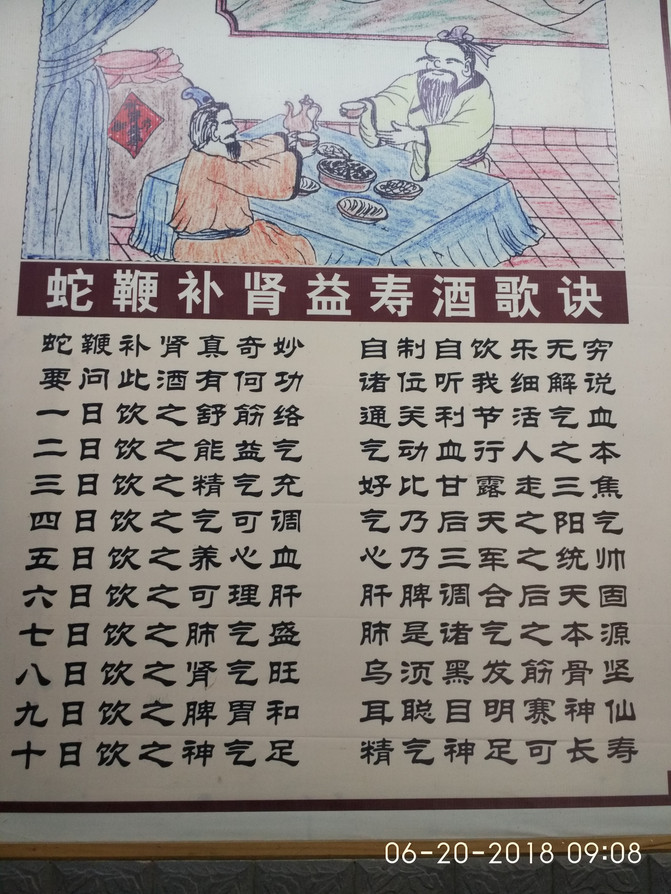 蛇鞭补肾益寿酒歌诀
蛇鞭补肾真奇妙 自制自饮乐无穷
要问此酒有何功 诸位听我细解说
一日饮之舒筋络 通关利节活气血
二日饮之能益气 气动血行人之本
三日饮之精气充 好比甘露走三焦
四日饮之气可调 气乃后天之阳气
五日饮之养心血 心乃三军之统帅
六日饮之可理肝 肝脾调合后天固
七日饮之肺气盛 肺是诸气之本源
八日饮之肾气旺 乌须黑发筋骨坚
九日饮之脾胃和 耳聪目明寨神仙
十日饮之神气足 精气神足可长寿
06-20-2018 09:08